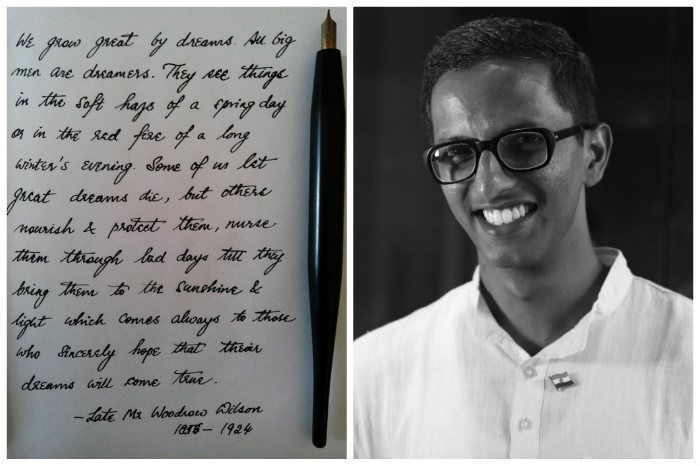 We grow great by dreams. All big
men are dreamers. They see things
in the soft haze of a spring day
or in the red fire of a long
winter's evening. Some of us let
great dreams die, but others
nourish & protect them, nurse
them through bad days till they
bring them to the sunshine &
light which comes always to those
who sincerely hope that their
dreams will come true.
- Late Mr Woodrow Wilson
1856 - 1924